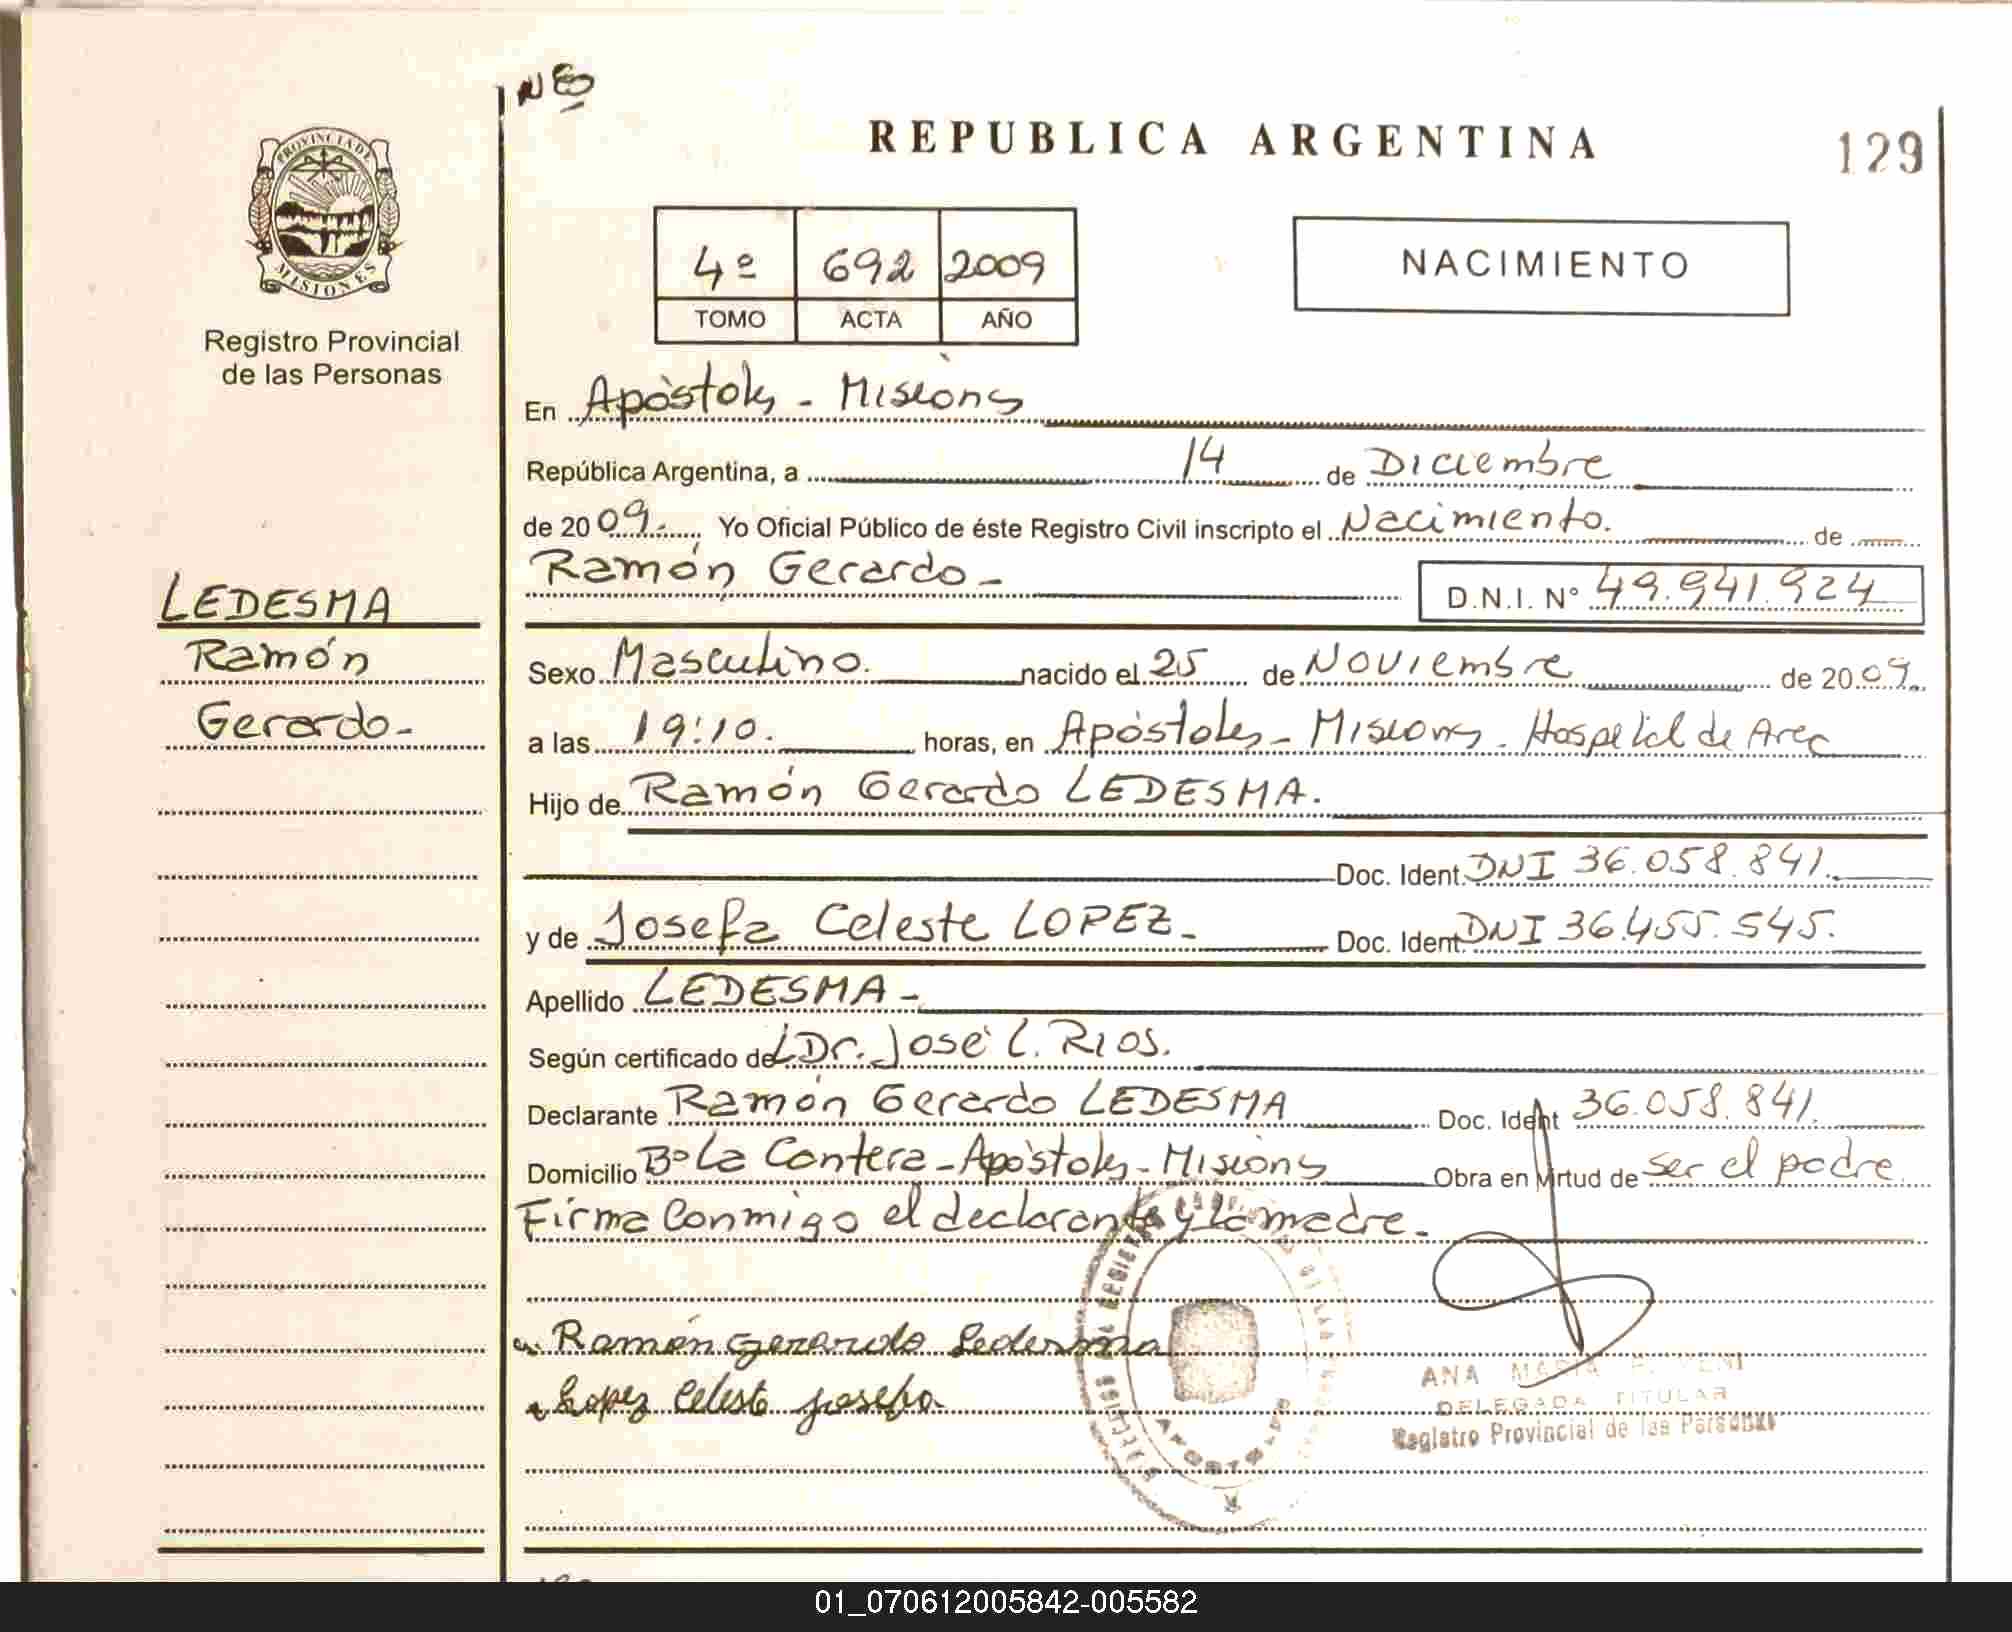 NES
REPUBLICA ARGENTINA
129
PROVINCIA DE
MISIONES
Registro Provincial
de las Personas
4º 692 2009
TOMO ACTA AÑO
NACIMIENTO
En Apóstoles - Misiones
República Argentina, a 14 de Diciembre
de 2009. Yo Oficial Público de éste Registro Civil inscripto el Nacimiento. de
Ramón Gerardo - D.N.I. Nº 49.941.924
LEDESMA
Ramón
Gerardo -
Sexo Masculino. nacido el 25 de Noviembre de 2009.
a las 19:10. horas, en Apóstoles - Misiones - Hospital de Area
Hijo de Ramón Gerardo LEDESMA.
Doc. Ident. DNI 36.058.841.
y de Josefa Celeste LOPEZ - Doc. Ident. DNI 36.455.545.
Apellido LEDESMA -
Según certificado del Dr. José L. RIOS.
Declarante Ramón Gerardo LEDESMA Doc. Ident 36.058.841.
Domicilio Bº La Cantera - Apóstoles - Misiones Obra en virtud de ser el padre
Firma Conmigo el declarante y la madre -
Ramón Gerardo Ledesma
Lopez Celeste Josefa
APOSTOLES
ANA MARIA
DELEGADA TITULAR
Registro Provincial de las Personas
01_070612005842-005582